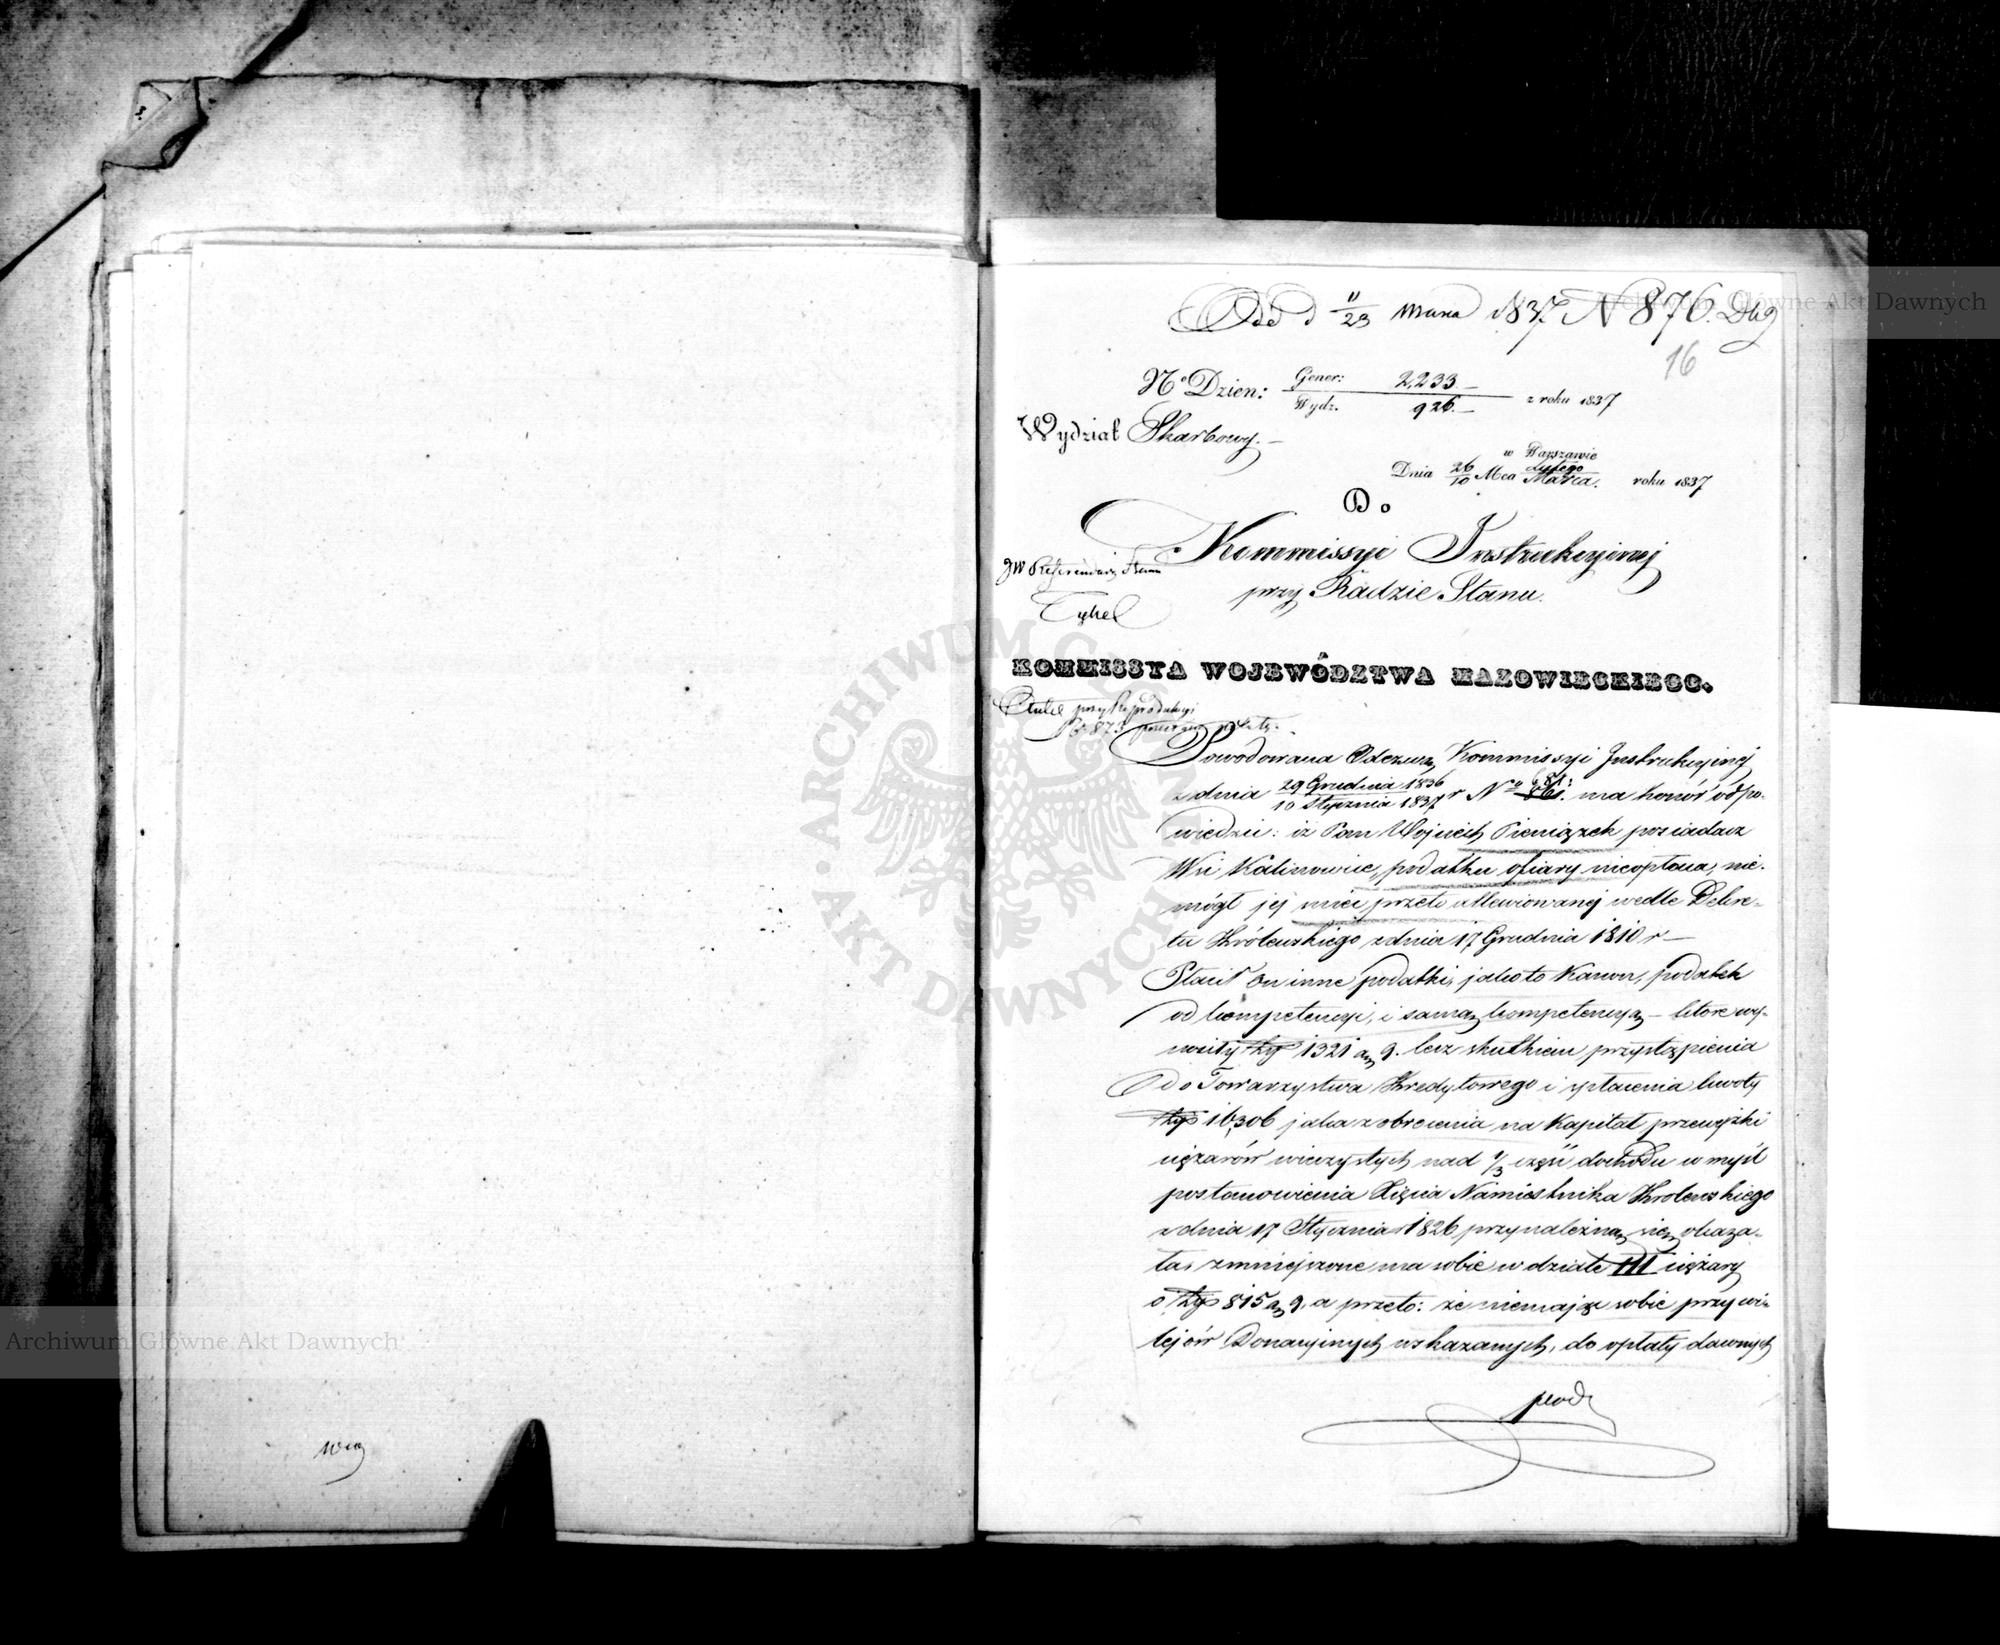 Odd d 11/23 Marca 1837 N 876. Dbg
16
No Dzien: Gener: 2,233 z roku 1837
Wydz. 926.
Wydział Skarbowy.
w Warszawie
Dnia 26/10 Mca Lutego/Marca. roku 1837
Do
Kommissyi Instrukcyinej
JW Referendarz Stanu
przy Radzie Stanu.
Tykel
KOMMISSYA WOJEWÓDZTWA MAZOWIECKIEGO.
przy
No 873
Powodowana Odezwą Kommissyi Instrukcyinej
z dnia 29 Grudnia 1836/10 Stycznia 1837 r No ma honor odpo-
wiedzieć: iż Pan Wojciech Pieniążek posiadacz
Wsi Kalinowiec, podatku ofiary nieopłaca, nie-
mógł jej mieć przeto allewiowanej wedle Dekre-
tu Królewskiego z dnia 17 Grudnia 1810 r
Płacił on inne podatki, jako to Kanon, podatek
od kompetencyi, i samą kompetencyą - które wy-
nosiły złp 1321 g 9. lecz skutkiem przystąpienia
do Towarzystwa Kredytowego i spłacenia kwoty
złp 16,306 jaka z obrócenia na Kapitał przewyżki
ciężarów wieczystych nad 1/3 część dochodu w myśl
postanowienia Xięcia Namiestnika Królewskiego
z dnia 17 Stycznia 1826 przynależną się okaza-
ła, zmniejszone ma sobie w dziale III ciężary
o złp 815 g 9, a przeto: że niemając sobie przywi-
lejów Donacyinych wskazanych, do opłaty dawnych
pod
Archiwum Główne Akt Dawnych
Archiwum Główne Akt Dawnych
ARCHIWUM GŁÓWNE AKT DAWNYCH